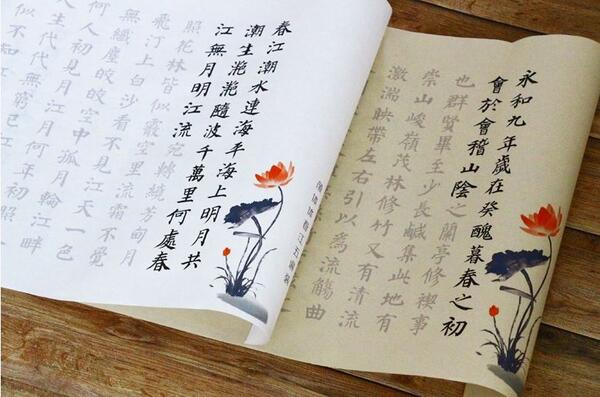 永和九年歲在癸醜暮春之初
會於會稽山陰之蘭亭修禊事
也群賢畢至少長鹹集此地有
崇山峻嶺茂林修竹又有清流
激湍映帶左右引以為流觴曲
春江潮水連海平海上明月共
潮生灩灩隨波千萬里何處春
江無月明江流宛轉繞芳甸月
照花林皆似霰空里流霜不覺
飛汀上白沙看不見江天一色
無纖塵皎皎空中孤月輪江畔
何人初見月江月何年初照
人生代代無窮已江
似不知江